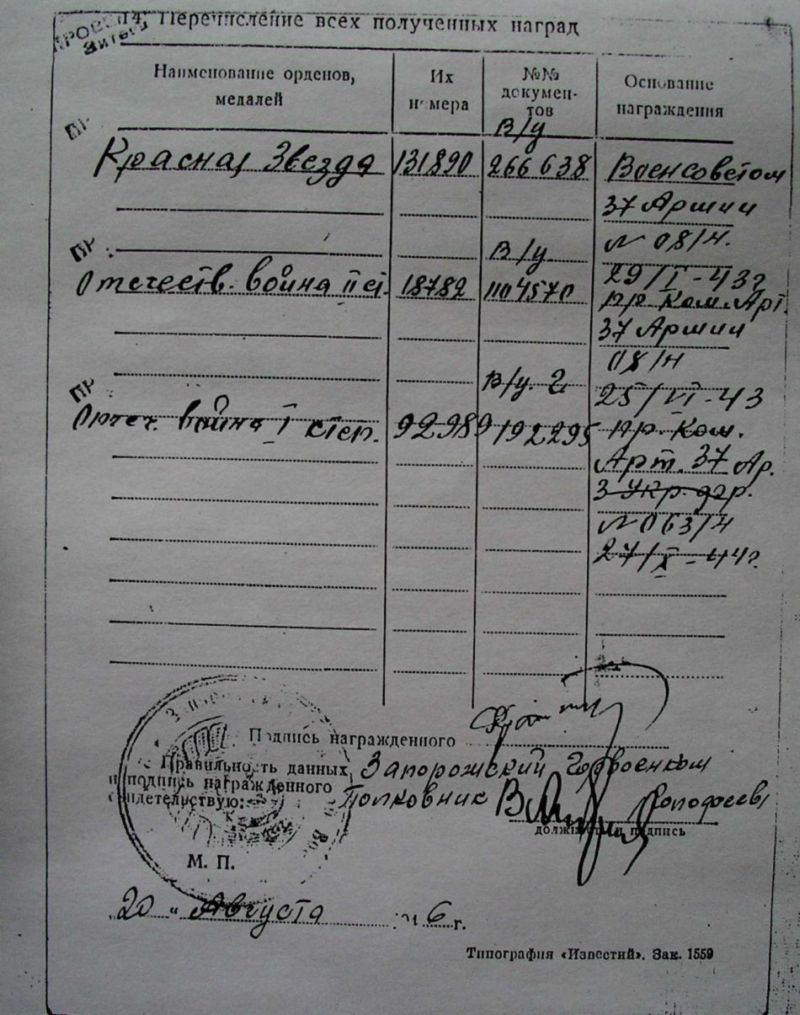 14. Перечисление всех полученных наград
Наименование орденов, медалей
Их номера
№№ документов
Основание награждения
ПР
В/у
Красная Звезда 131890 266638 Военсоветом
37 Армии
№ 08/н.
29/I-43г
ПР
В/у
Отечеств. война II ст. 18782 1104570 пр. Ком. Арт.
37 Армии
08/н
25/VI-43
ПР
В/у. 2
Отеч. война I степ. 92989 192295 пр. Ком.
Арт. 37 Ар.
3 Укр. фр.
№ 063/н
27/X-44г
Подпись награжденного
Правильность данных Запорожский Горвоенком
и подпись награжденного Полковник
свидетельствую:
должность и подпись
М. П.
20 " Августа 6 г.
Типография «Известий». Зак. 1559